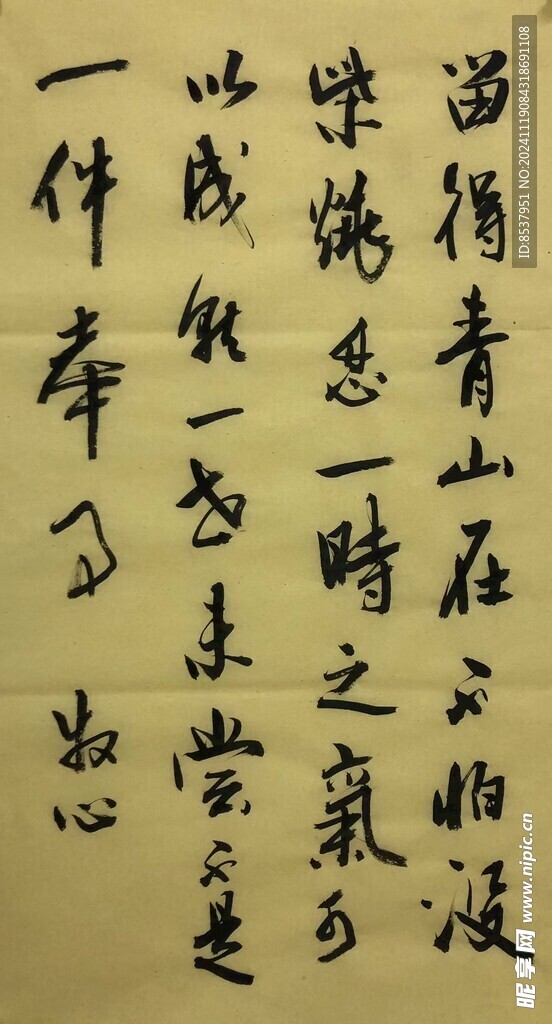 留得青山在不怕没
柴烧忍一時之氣可
以成就一世未尝不是
一件幸事
牧心
ID:8537951 NO:20241119084318691108
昵享网 www.nipic.cn